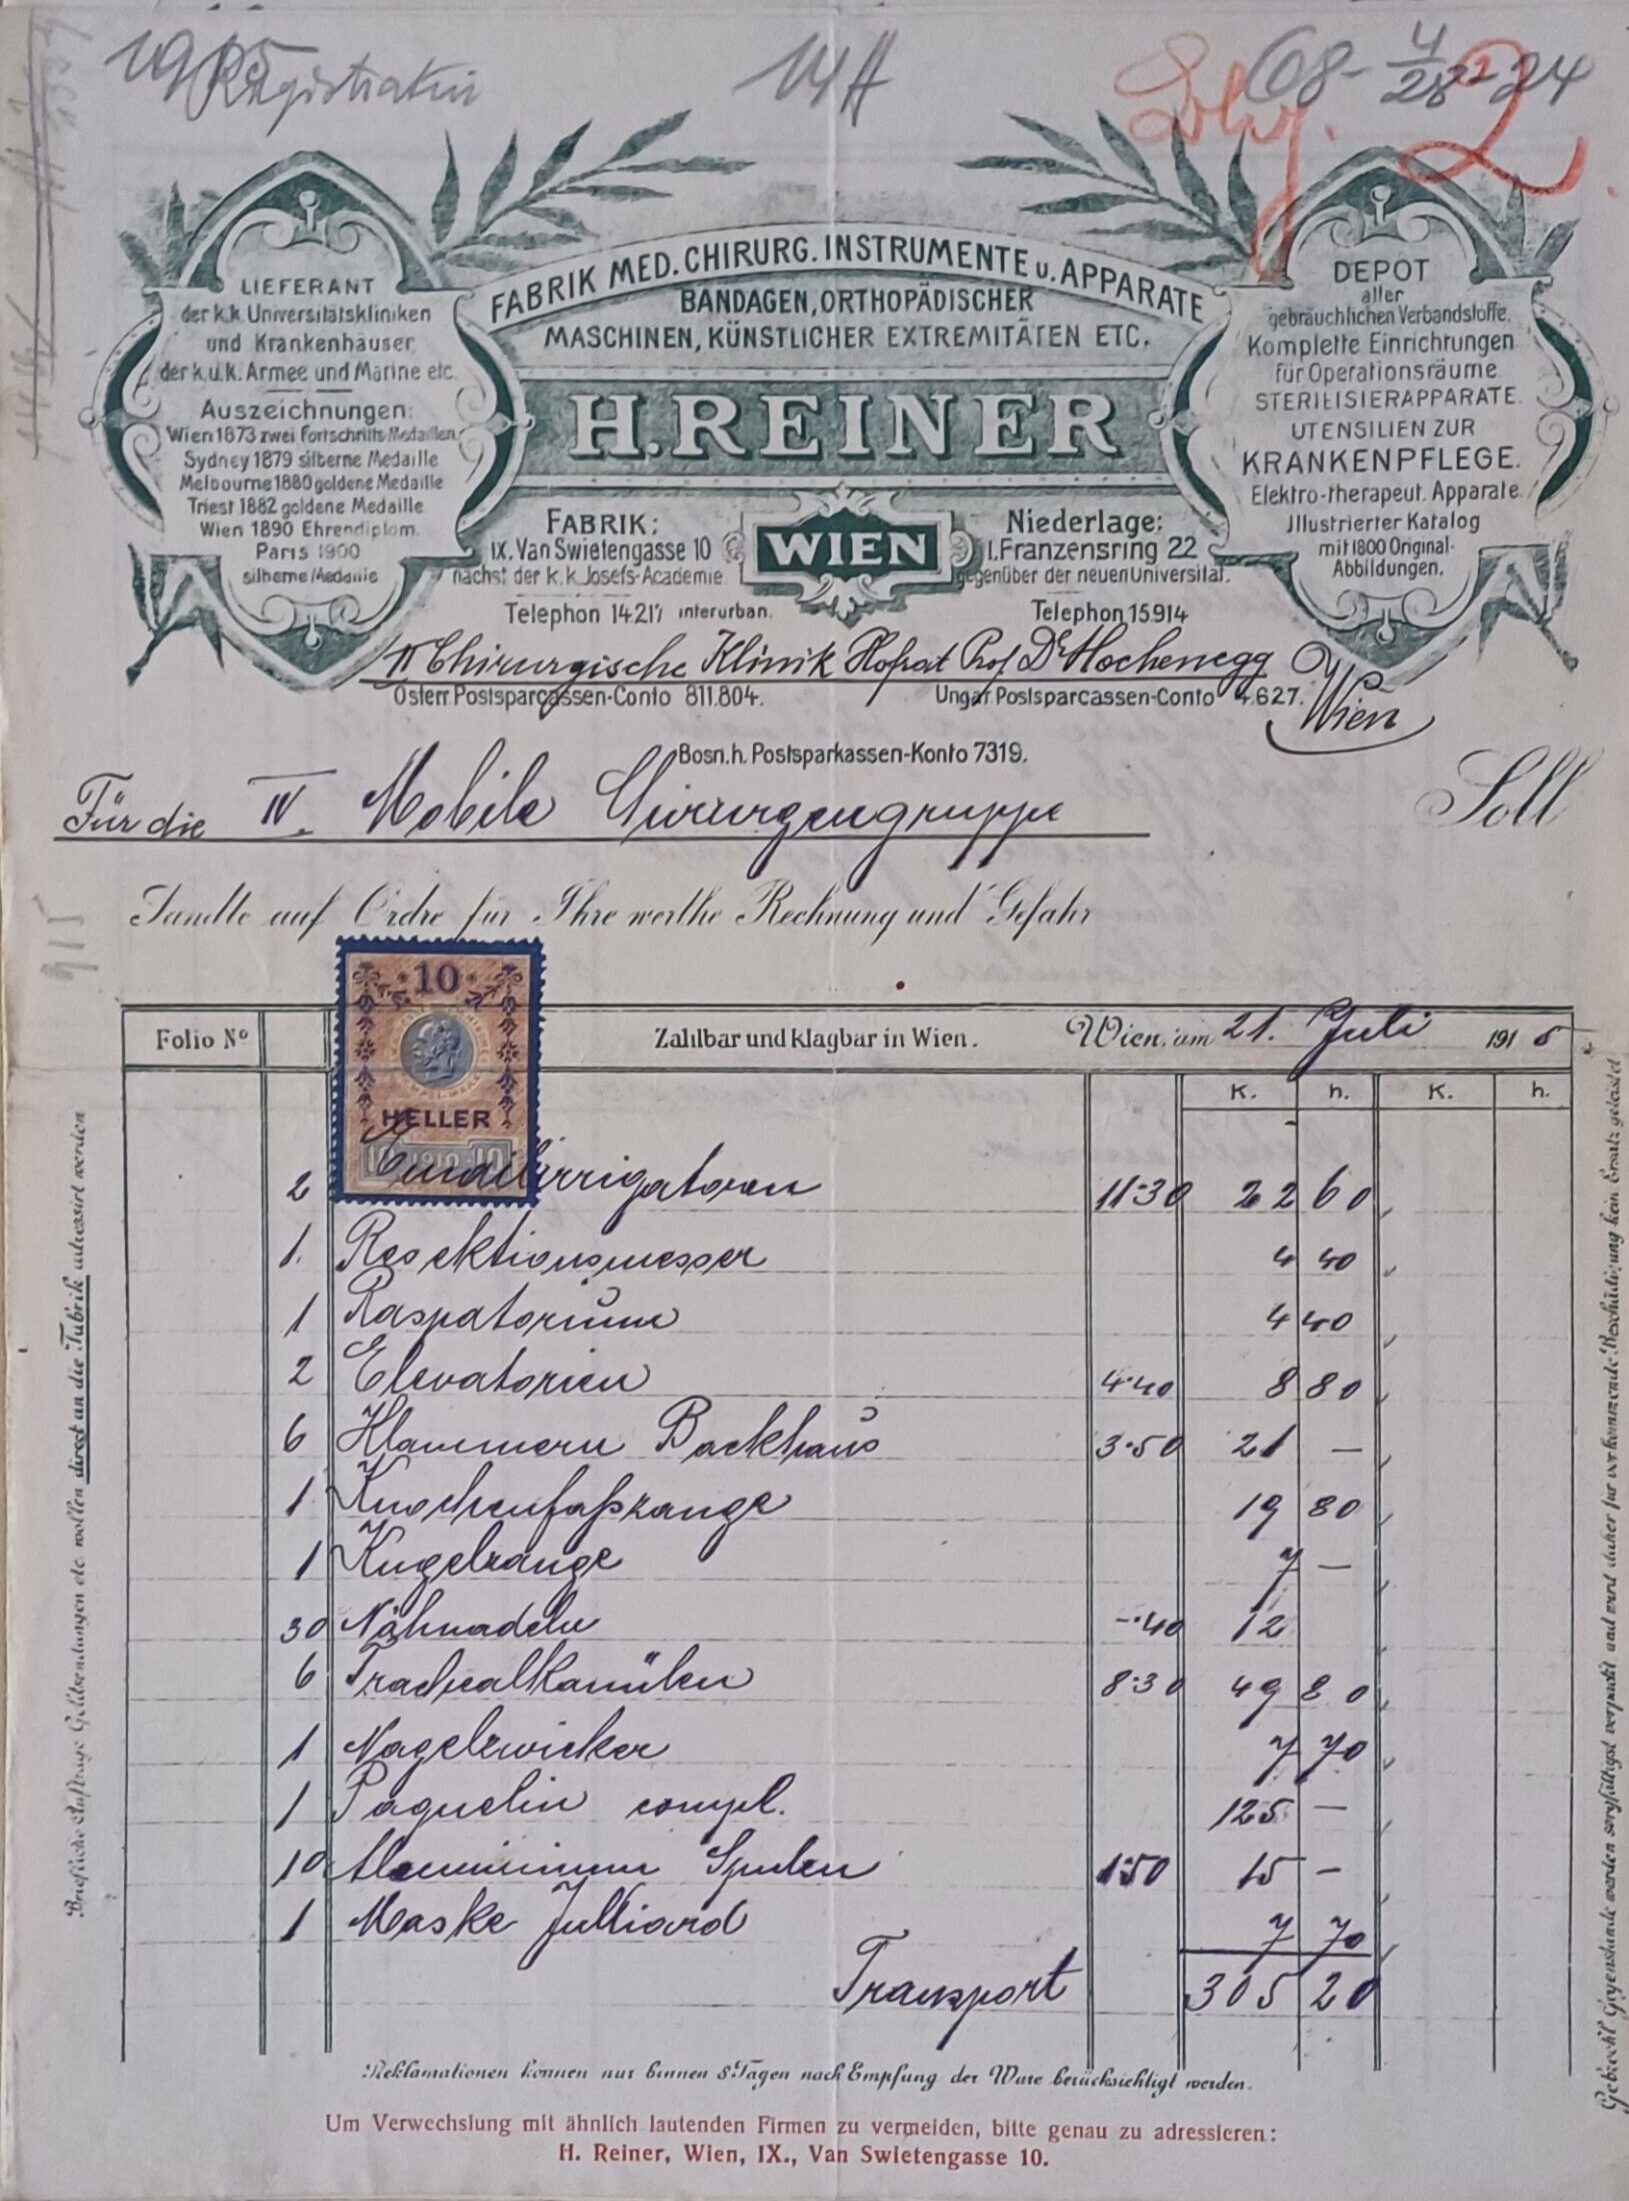 1915 Registratur
14A
68-4/28-24
Blg. 2.
FABRIK MED. CHIRURG. INSTRUMENTE u. APPARATE
BANDAGEN, ORTHOPÄDISCHER
MASCHINEN, KÜNSTLICHER EXTREMITÄTEN ETC.
H. REINER
LIEFERANT
der k.k. Universitätskliniken
und Krankenhäuser,
der k.u.k. Armee und Marine etc.
Auszeichnungen:
Wien 1873 zwei Fortschritts-Medaillen
Sydney 1879 silberne Medaille
Melbourne 1880 goldene Medaille
Triest 1882 goldene Medaille
Wien 1890 Ehrendiplom.
Paris 1900
silberne Medaille
DEPOT
aller
gebräuchlichen Verbandstoffe.
Komplette Einrichtungen
für Operationsräume
STERILISIERAPPARATE.
UTENSILIEN ZUR
KRANKENPFLEGE.
Elektro-therapeut. Apparate.
Jllustrierter Katalog
mit 1800 Original-
Abbildungen.
FABRIK:
IX. Van Swietengasse 10
nächst der k.k. Josefs-Academie
Telephon 14217 interurban.
WIEN
Niederlage:
I. Franzensring 22
gegenüber der neuen Universität.
Telephon 15914
II Chirurgische Klinik Hofrat Prof. Dr Hochenegg
Wien
Österr. Postsparcassen-Conto 811.804.
Ungar. Postsparcassen-Conto 4.627.
Bosn. h. Postsparkassen-Konto 7319.
Für die IV. Mobile Chirurgengruppe
Soll
Sandte auf Ordre für Ihre werthe Rechnung und Gefahr
10
HELLER
10 1910 10
Folio No
Zahlbar und klagbar in Wien.
Wien, am 21. Juli 1915
K. h. K. h.
2 Emailirrigatoren 11·30 22 60
1. Resektionsmesser 4 40
1 Raspatorium 4 40
2 Elevatorien 4·40 8 80
6 Klammern Backhaus 3·50 21 —
1 Knochenfaßzange 19 80
1 Kugelzange 7 —
30 Nähnadeln -·40 12
6 Trachealkanülen 8·30 49 80
1 Nagelzwicker 7 70
1 Paquelin compl. 125 —
10 Aluminium Spulen 1·50 15 —
1 Maske Julliard 7 70
Transport 305 20
Briefliche Aufträge Geldsendungen etc wollen direct an die Fabrik adressirt werden
Gebrecht Gegenstände werden sorgfältigst verpackt und wird daher für vorkommende Beschädigung kein Ersatz geleistet
915
Reklamationen können nur binnen 8 Tagen nach Empfang der Ware berücksichtigt werden.
Um Verwechslung mit ähnlich lautenden Firmen zu vermeiden, bitte genau zu adressieren:
H. Reiner, Wien, IX., Van Swietengasse 10.